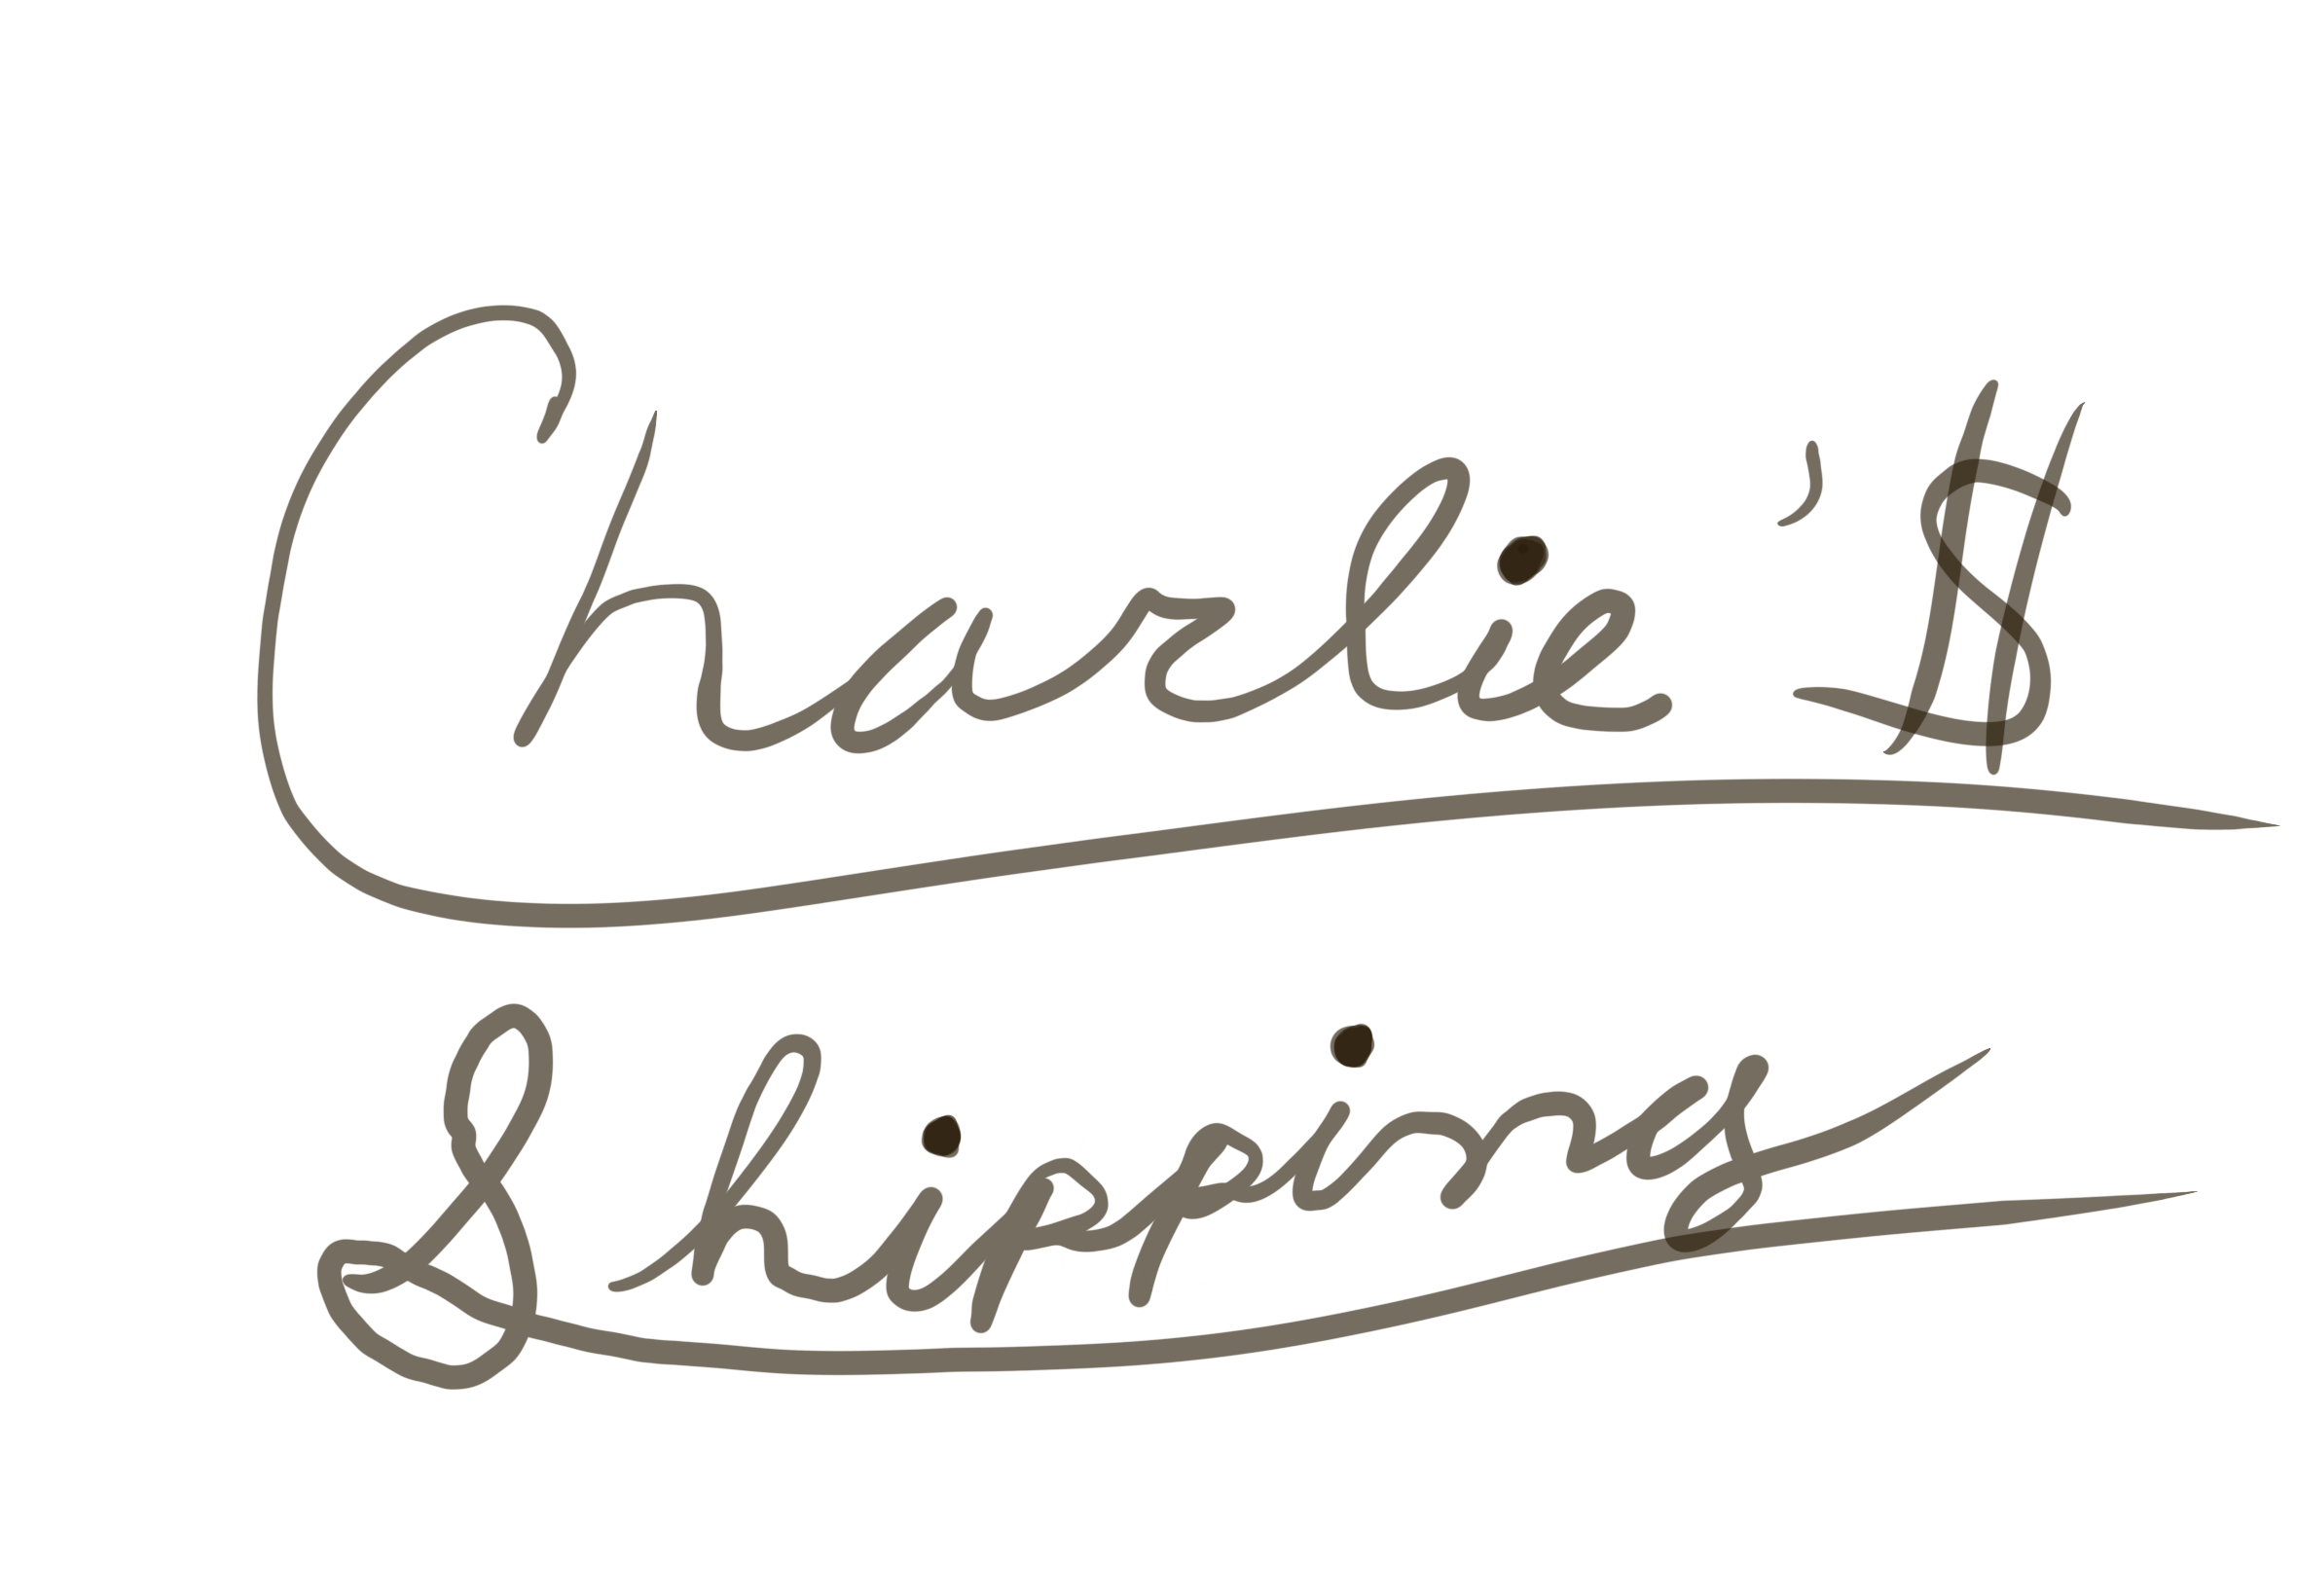 Charlie'$
Shipping